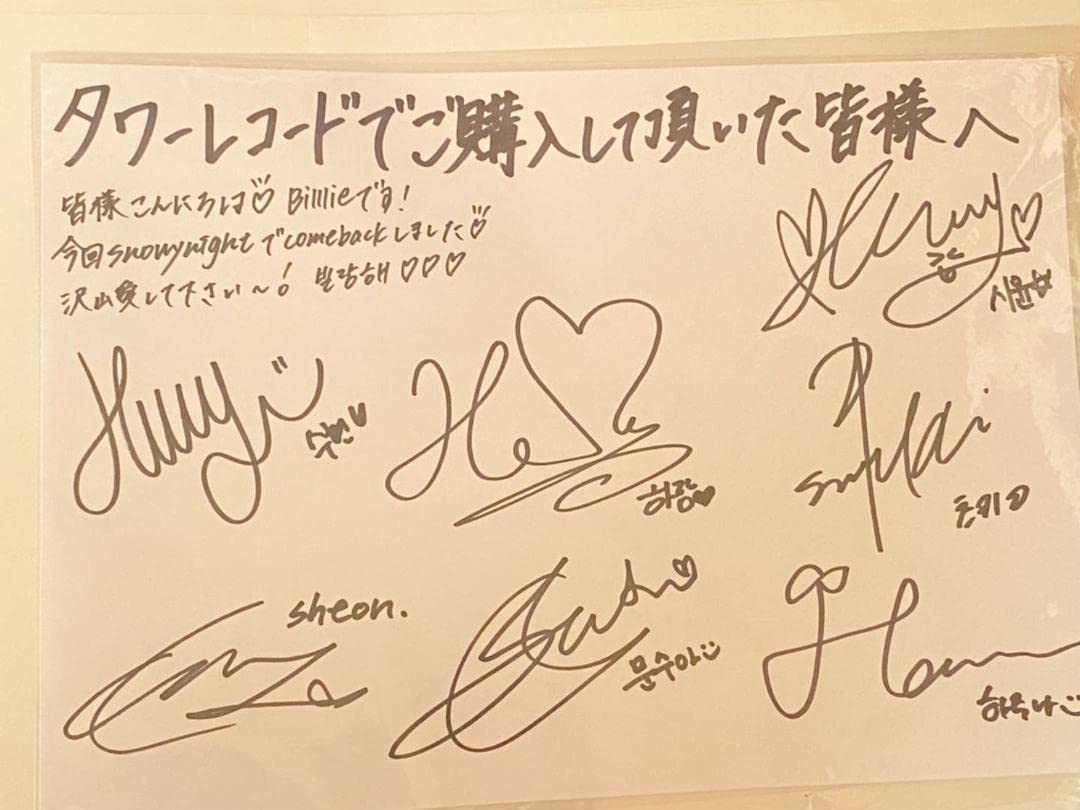 タワーレコードでご購入して頂いた皆様へ
皆様こんにちは♡ Billlieです!
今回snowynightでcomebackしました♡
沢山愛して下さい〜! 빌랑해♡♡♡
시윤
수현♥
하람♥
츠키
sheon.
문수아
하루나